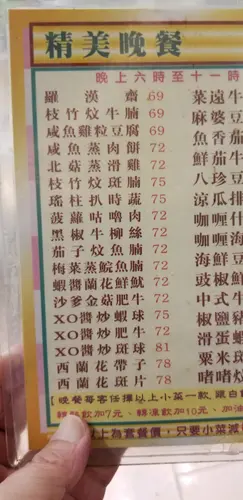 精美晚餐
晚上六時至十一時
羅漢齋 69
枝竹炆牛腩 69
咸魚雞粒豆腐 69
咸魚蒸肉餅 72
北菇蒸滑雞 72
枝竹炆斑腩 75
瑤柱扒時蔬 75
菠蘿咕嚕肉 72
黑椒牛柳絲 72
茄子炆魚腩 72
梅菜蒸鯇魚腩 72
蝦醬蘭花鮮魷 72
沙爹金菇肥牛 72
XO醬炒蝦球 75
XO醬炒肥牛 72
XO醬炒斑球 81
西蘭花帶子 78
西蘭花斑片 78
菜遠牛
麻婆豆
魚香茄
鮮茄牛
八珍豆
涼瓜排
咖喱牛
咖喱什
海鮮豆
豉椒鮮
中式牛
椒鹽豬
滑蛋蝦
粟米斑
啫啫
【晚餐每客任擇以上小菜一款 跟白
轉熱飲加7元、轉凍飲加10元、加
以上為套餐價，只要小菜減